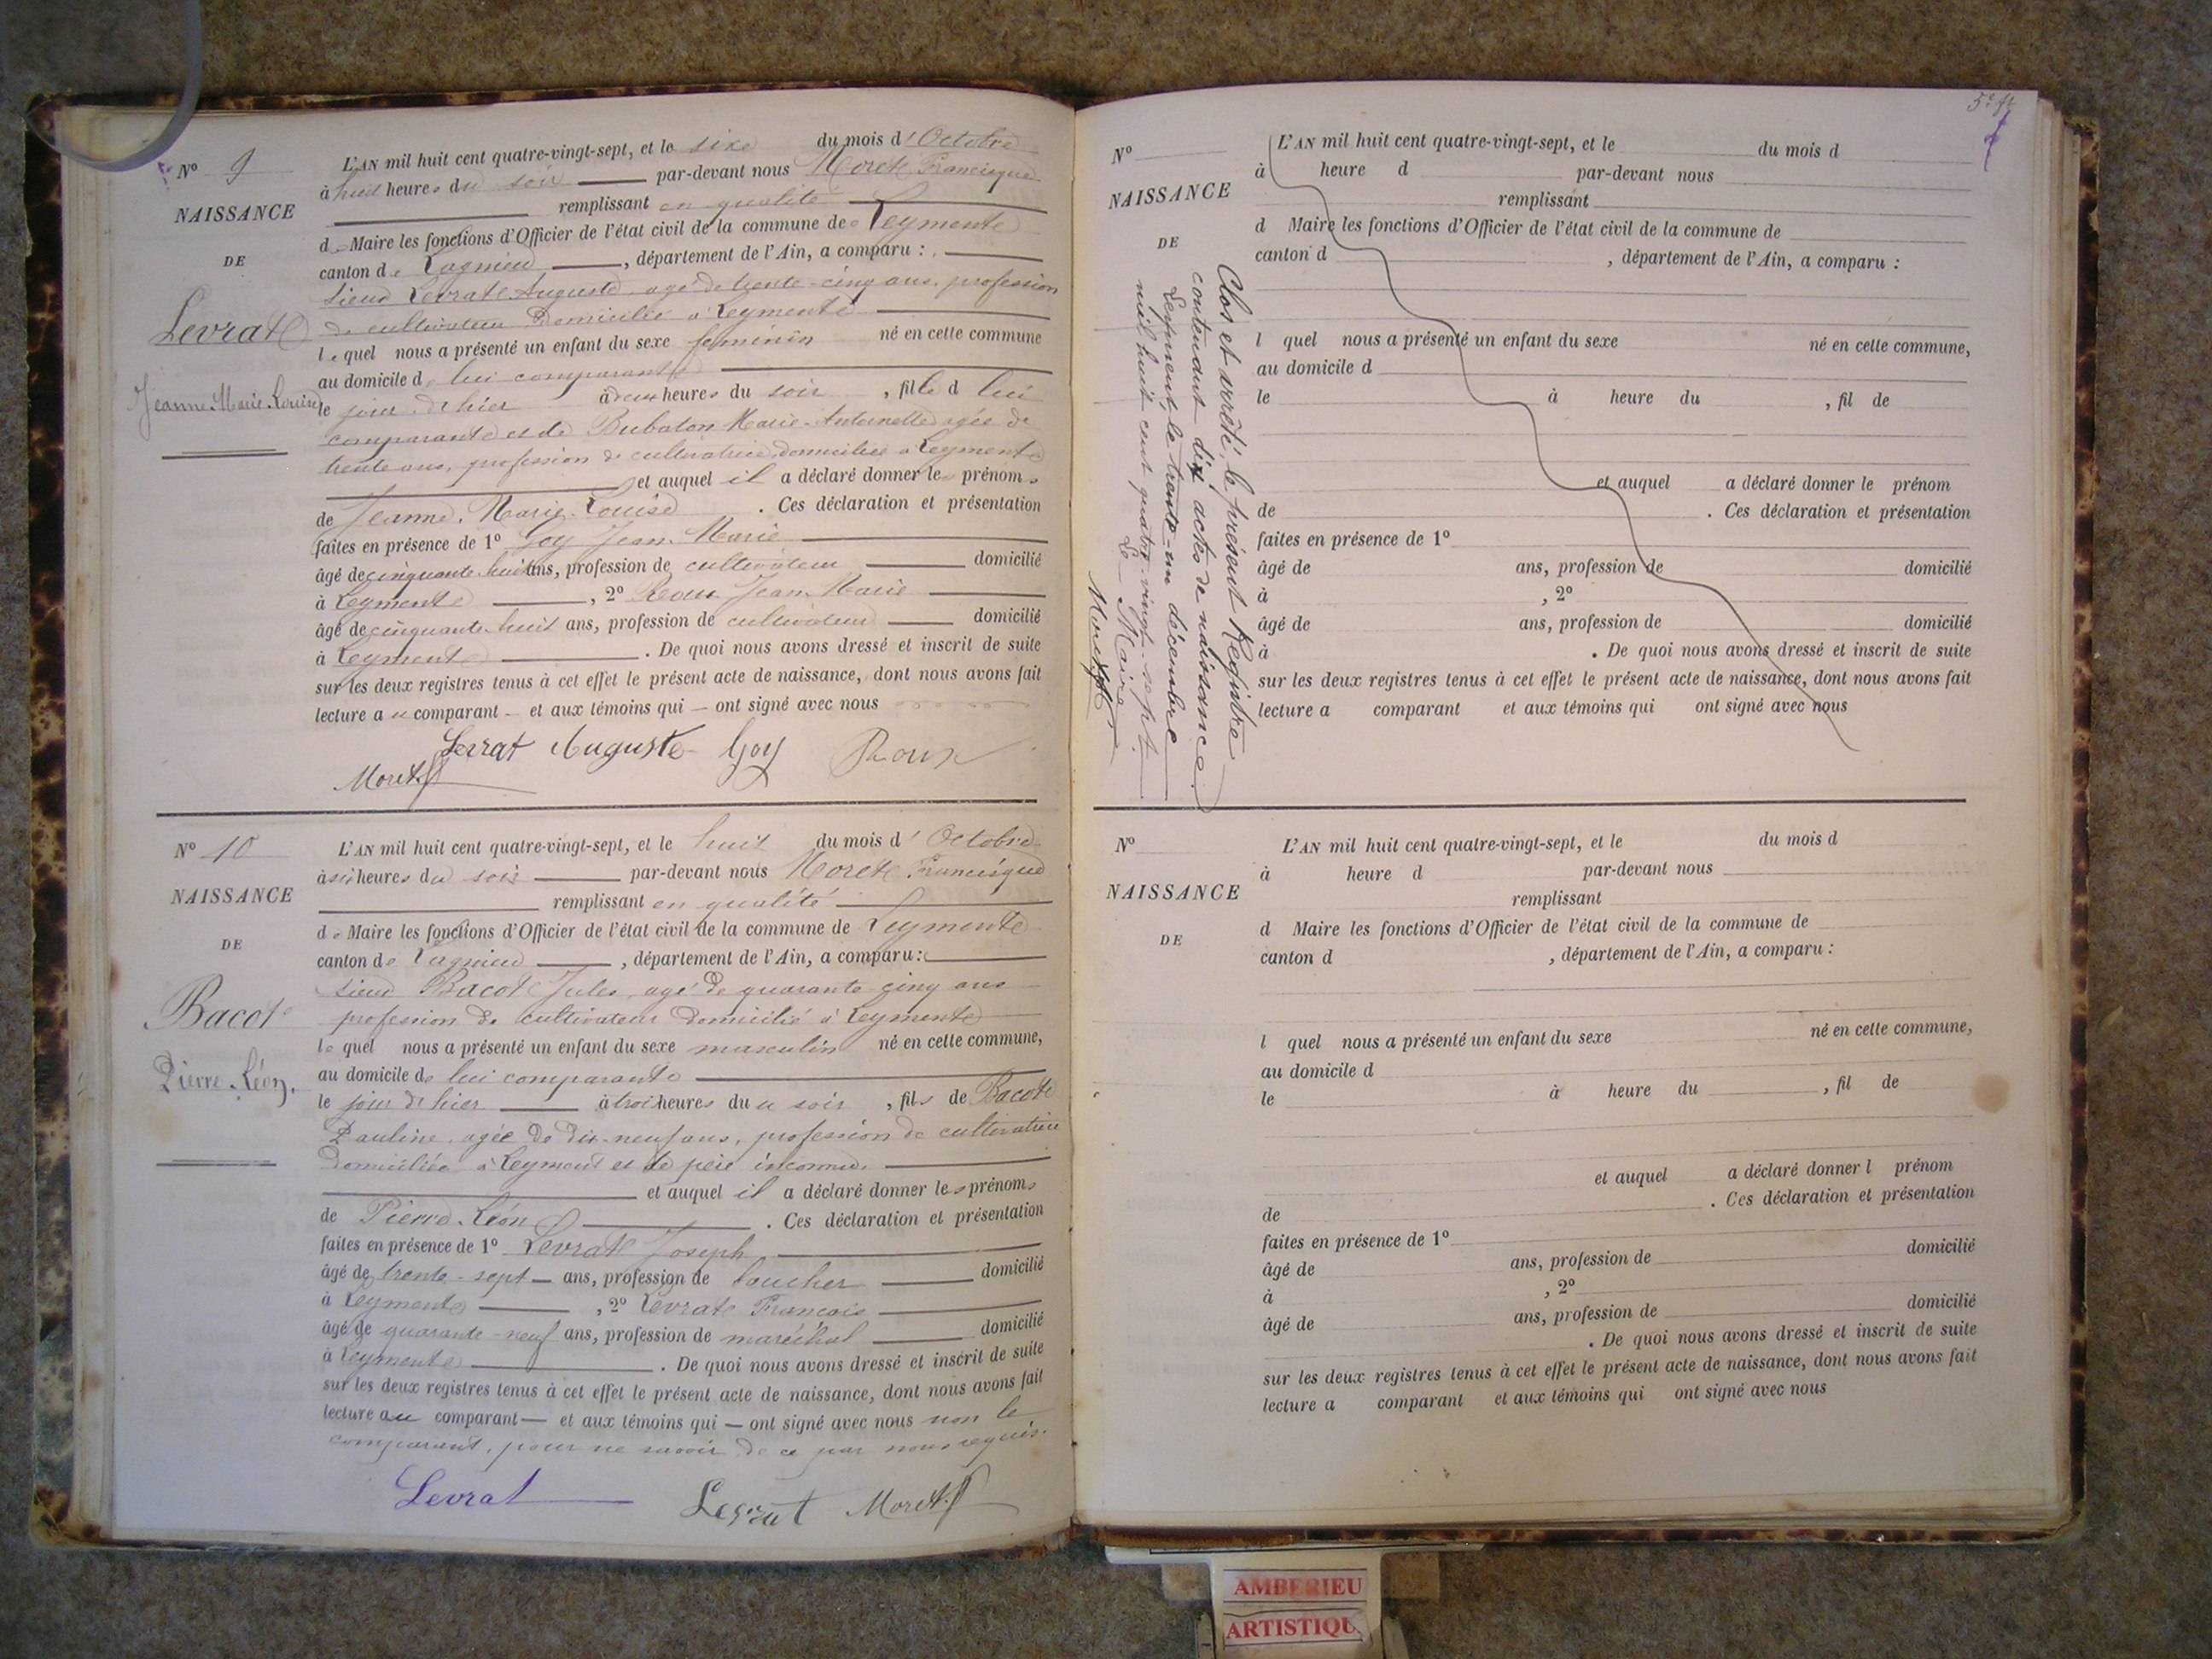 N° 9
NAISSANCE
DE
Levrat
Jeanne-Marie-Louise
L'AN mil huit cent quatre-vingt-sept, et le six du mois d'Octobre
à huit heures du soir par-devant nous Moret Francisque
remplissant en qualité
de Maire les fonctions d'Officier de l'état civil de la commune de Leyment
canton de Lagnieu, département de l'Ain, a comparu :
sieur Levrat Auguste, agé de trente-cinq ans, profession
de cultivateur domicilié à Leyment
lequel nous a présenté un enfant du sexe féminin né en cette commune
au domicile de lui comparant
le jour d'hier à deux heures du soir, fille d lui
comparant et de Bubaton Marie-Antoinette agée de
trente ans, profession de cultivatrice, domiciliée à Leyment
et auquel il a déclaré donner les prénoms
de Jeanne, Marie-Louise. Ces déclaration et présentation
faites en présence de 1° Goy Jean-Marie
âgé de cinquante-huit ans, profession de cultivateur domicilié
à Leyment, 2° Roux Jean-Marie
âgé de cinquante-huit ans, profession de cultivateur domicilié
à Leyment. De quoi nous avons dressé et inscrit de suite
sur les deux registres tenus à cet effet le présent acte de naissance, dont nous avons fait
lecture au comparant et aux témoins qui ont signé avec nous
Levrat Auguste Goy Roux
Moret
N° 10
NAISSANCE
DE
Bacot
Pierre-Léon.
L'AN mil huit cent quatre-vingt-sept, et le huit du mois d'Octobre
à six heures du soir par-devant nous Moret Francisque
remplissant en qualité
de Maire les fonctions d'Officier de l'état civil de la commune de Leyment
canton de Lagnieu, département de l'Ain, a comparu :
sieur Bacot Jules, agé de quarante cinq ans
profession de cultivateur domicilié à Leyment
lequel nous a présenté un enfant du sexe masculin né en cette commune,
au domicile de lui comparant
le jour d'hier à trois heures du soir, fils de Bacot
Pauline, agée de dix-neuf ans, profession de cultivatrice
domiciliée à Leyment et de père inconnu.
et auquel il a déclaré donner les prénoms
de Pierre-Léon. Ces déclaration et présentation
faites en présence de 1° Levrat Joseph
âgé de trente-sept ans, profession de boucher domicilié
à Leyment, 2° Levrat François
âgé de quarante-neuf ans, profession de maréchal domicilié
à Leyment. De quoi nous avons dressé et inscrit de suite
sur les deux registres tenus à cet effet le présent acte de naissance, dont nous avons fait
lecture au comparant et aux témoins qui ont signé avec nous non le
comparant, pour ne savoir de ce par nous requis.
Levrat Levrat Moret
N°
NAISSANCE
DE
L'AN mil huit cent quatre-vingt-sept, et le du mois d
à heure d par-devant nous
remplissant
d Maire les fonctions d'Officier de l'état civil de la commune de
canton d , département de l'Ain, a comparu :
l quel nous a présenté un enfant du sexe né en cette commune,
au domicile d
le à heure du , fil de
et auquel a déclaré donner le prénom
de . Ces déclaration et présentation
faites en présence de 1°
âgé de ans, profession de domicilié
à , 2°
âgé de ans, profession de domicilié
à . De quoi nous avons dressé et inscrit de suite
sur les deux registres tenus à cet effet le présent acte de naissance, dont nous avons fait
lecture a comparant et aux témoins qui ont signé avec nous
Clos et arrêté, le présent Registre
contenant dix actes de naissance
Leyment, le trente-un décembre
mil huit cent quatre-vingt-sept.
Le Maire
Moret
N°
NAISSANCE
DE
L'AN mil huit cent quatre-vingt-sept, et le du mois d
à heure d par-devant nous
remplissant
d Maire les fonctions d'Officier de l'état civil de la commune de
canton d , département de l'Ain, a comparu :
l quel nous a présenté un enfant du sexe né en cette commune,
au domicile d
le à heure du , fil de
et auquel a déclaré donner l prénom
de . Ces déclaration et présentation
faites en présence de 1°
âgé de ans, profession de domicilié
à , 2°
âgé de ans, profession de domicilié
. De quoi nous avons dressé et inscrit de suite
sur les deux registres tenus à cet effet le présent acte de naissance, dont nous avons fait
lecture a comparant et aux témoins qui ont signé avec nous
AMBERIEU
ARTISTIQU